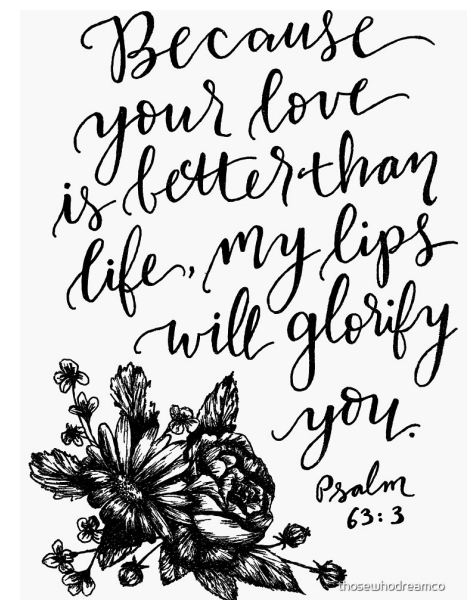 Because
your love
is better than
life, my lips
will glorify
you.
Psalm
63:3
thosewhodreamco